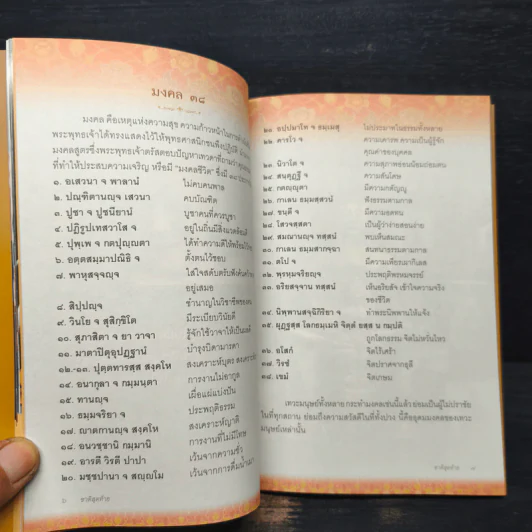 มงคล ๓๘
มงคล คือเหตุแห่งความสุข ความก้าวหน้าในการดำเนิน
พระพุทธเจ้าได้ทรงแสดงไว้ให้พุทธศาสนิกชนพึงปฏิบัติ
มงคลสูตรซึ่งพระพุทธเจ้าตรัสตอบปัญหาเทวดาที่ถามว่า
ที่ทำให้ประสบความเจริญ หรือมี "มงคลชีวิต" ซึ่งมี
๑. อเสวนา จ พาลานํ ไม่คบคนพาล
๒. ปณฺฑิตานญฺจ เสวนา คบบัณฑิต
๓. ปูชา จ ปูชนียานํ บูชาคนที่ควรบูชา
๔. ปฏิรูปเทสวาโส จ อยู่ในถิ่นมีสิ่งแวดล้อมดี
๕. ปุพฺเพ จ กตปุญฺญตา ได้ทำความดีให้พร้อมไว้ก่อน
๖. อตฺตสมฺมาปณิธิ จ ตั้งตนไว้ชอบ
๗. พาหุสจฺจญฺจ ใส่ใจสดับตรับฟังค้นคว้า
อยู่เสมอ
๘. สิปฺปญฺจ ชำนาญในวิชาชีพของตน
๙. วินโย จ สุสิกฺขิโต มีระเบียบวินัยดี
๑๐. สุภาสิตา จ ยา วาจา รู้จักใช้วาจาให้เป็นผลดี
๑๑. มาตาปิตุอุปฏฺฐานํ บำรุงบิดามารดา
๑๒-๑๓. ปุตฺตทารสฺส สงฺคโห สงเคราะห์บุตร สงเคราะห์
๑๔. อนากุลา จ กมฺมนฺตา การงานไม่อากูล
๑๕. ทานญฺจ เผื่อแผ่แบ่งปัน
๑๖. ธมฺมจริยา จ ประพฤติธรรม
๑๗. ญาตกานญฺจ สงฺคโห สงเคราะห์ญาติ
๑๘. อนวชฺชานิ กมฺมานิ การงานที่ไม่มีโทษ
๑๙. อารตี วิรตี ปาปา เว้นจากความชั่ว
๒๐. มชฺชปานา จ สญฺญโม เว้นจากการดื่มน้ำเมา
๒๑. อปฺปมาโท จ ธมฺเมสุ ไม่ประมาทในธรรมทั้งหลาย
๒๒. คารโว จ ความเคารพ ความเป็นผู้รู้จัก
คุณค่าของบุคคล
๒๓. นิวาโต จ ความสุภาพอ่อนน้อมถ่อมตน
๒๔. สนฺตุฏฺฐี จ ความสันโดษ
๒๕. กตญฺญุตา มีความกตัญญู
๒๖. กาเลน ธมฺมสฺสวนํ ฟังธรรมตามกาล
๒๗. ขนฺตี จ มีความอดทน
๒๘. โสวจสฺสตา เป็นผู้ว่าง่ายสอนง่าย
๒๙. สมณานญฺจ ทสฺสนํ พบเห็นสมณะ
๓๐. กาเลน ธมฺมสากจฺฉา สนทนาธรรมตามกาล
๓๑. ตโป จ มีความเพียรเผากิเลส
๓๒. พฺรหฺมจริยญฺจ ประพฤติพรหมจรรย์
๓๓. อริยสจฺจาน ทสฺสนํ เห็นอริยสัจ เข้าใจความจริง
ของชีวิต
๓๔. นิพฺพานสจฺฉิกิริยา จ ทำพระนิพพานให้แจ้ง
๓๕. ผุฏฺฐสฺส โลกธมฺเมหิ จิตฺตํ ยสฺส น กมฺปติ
ถูกโลกธรรม จิตไม่หวั่นไหว
๓๖. อโสกํ จิตไร้เศร้า
๓๗. วิรชํ จิตปราศจากธุลี
๓๘. เขมํ จิตเกษม
เทวะมนุษย์ทั้งหลาย กระทำมงคลเช่นนี้แล้ว ย่อมเป็นผู้ไม่ปราชัย
ในที่ทุกสถาน ย่อมถึงความสวัสดีในที่ทั้งปวง นี้คืออุดมมงคลของเทวะ
มนุษย์เหล่านั้น